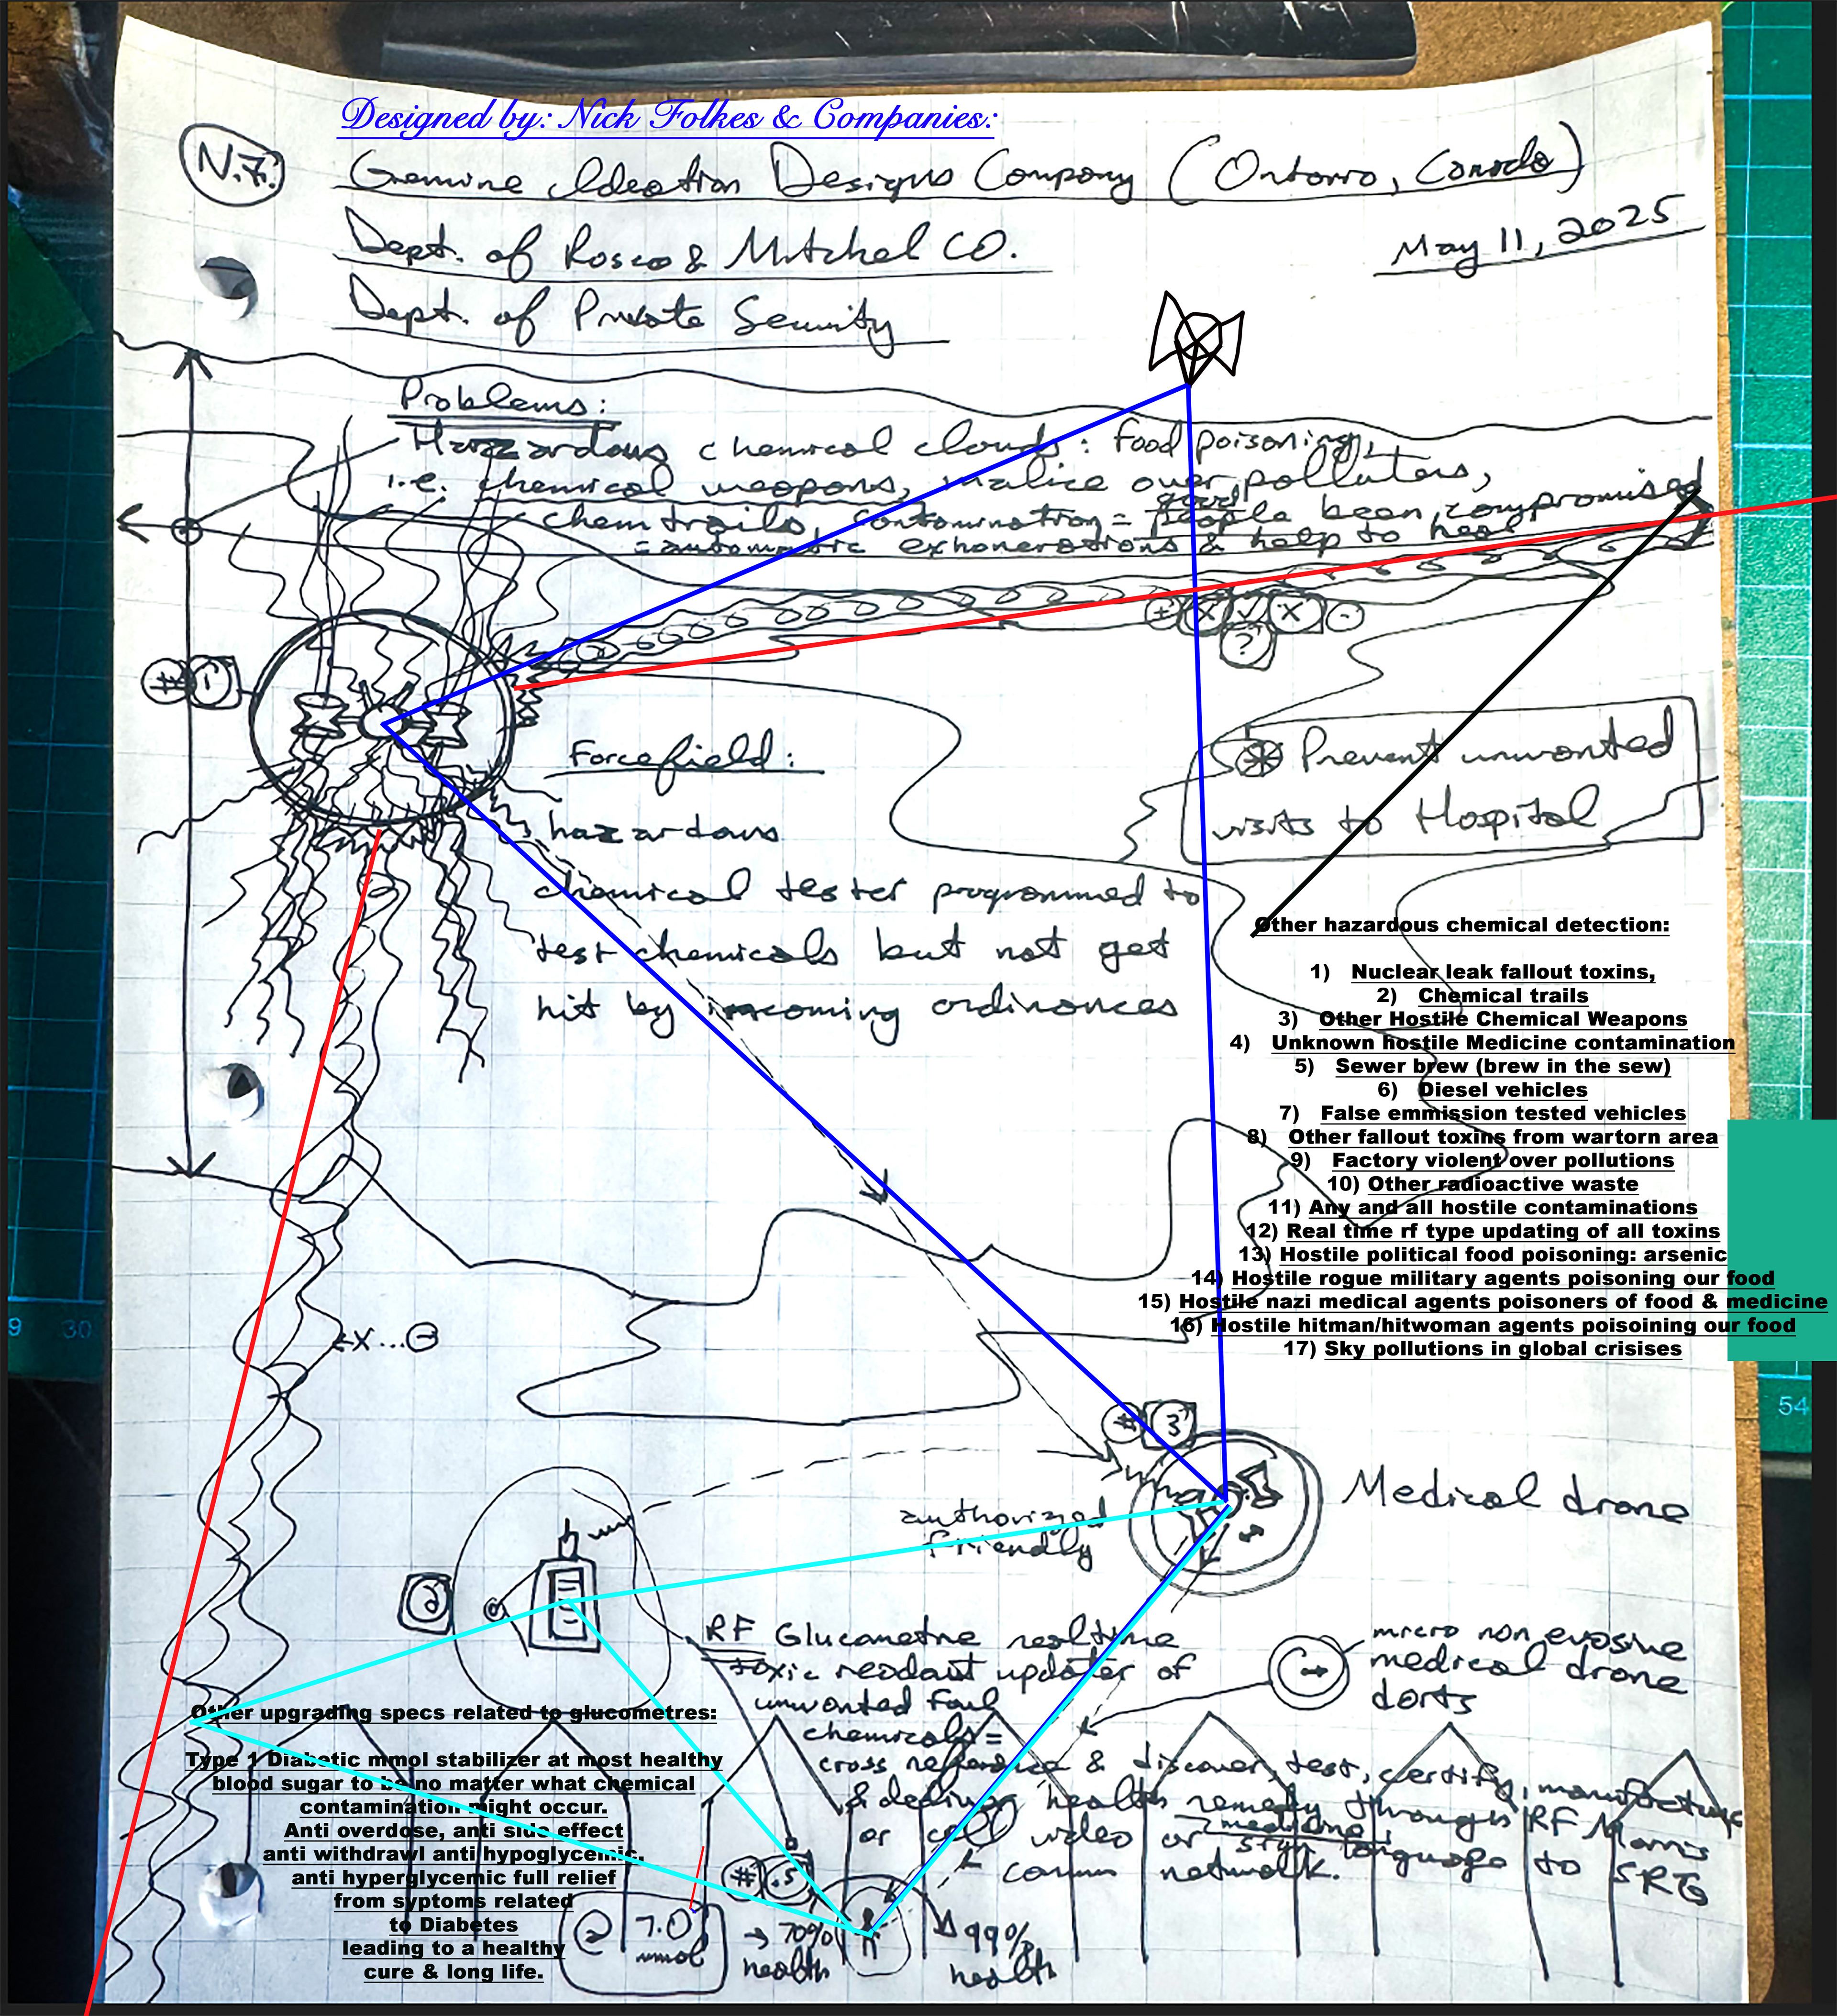 Designed by: Nick Folkes & Companies:
N.F. Genuine Ideation Designs Company (Ontario, Canada)
Dept. of Rosco & Mitchel CO.
May 11, 2025
Dept. of Private Security
Problems:
Hazzardous chemical clouds: food poisoning,
i.e. chemical weapons, malice over polluters,
chemtrails, contamination = good people been compromised
= automatic exhonerations & help to heal
+ X ✓ X -
?
# 1
Forcefield:
hazardous
chemical tester programmed to
test chemicals but not get
hit by incoming ordinances
Prevent unwanted
visits to Hospital
Other hazardous chemical detection:
1) Nuclear leak fallout toxins,
2) Chemical trails
3) Other Hostile Chemical Weapons
4) Unknown hostile Medicine contamination
5) Sewer brew (brew in the sew)
6) Diesel vehicles
7) False emmission tested vehicles
8) Other fallout toxins from wartorn area
9) Factory violent over pollutions
10) Other radioactive waste
11) Any and all hostile contaminations
12) Real time rf type updating of all toxins
13) Hostile political food poisoning: arsenic
14) Hostile rogue military agents poisoning our food
15) Hostile nazi medical agents poisoners of food & medicine
16) Hostile hitman/hitwoman agents poisoining our food
17) Sky pollutions in global crisises
9 30
54
# 3
Medical drone
authorized
friendly
RF Glucametre realtime
toxic readout updater of
unwanted foul
chemicals =
cross reference & discover, test, certify, manufacture
& deliver health remedy through RF
or cell video or sign language to
medicine
comms network.
SRG
micro non evasive
medical drone
darts
Other upgrading specs related to glucometres:
Type 1 Diabetic mmol stabilizer at most healthy
blood sugar to be no matter what chemical
contamination might occur.
Anti overdose, anti side effect
anti withdrawl anti hypoglycemic,
anti hyperglycemic full relief
from syptoms related
to Diabetes
leading to a healthy
cure & long life.
# .5
@ 7.0 mmol
→ 70% health
99% health